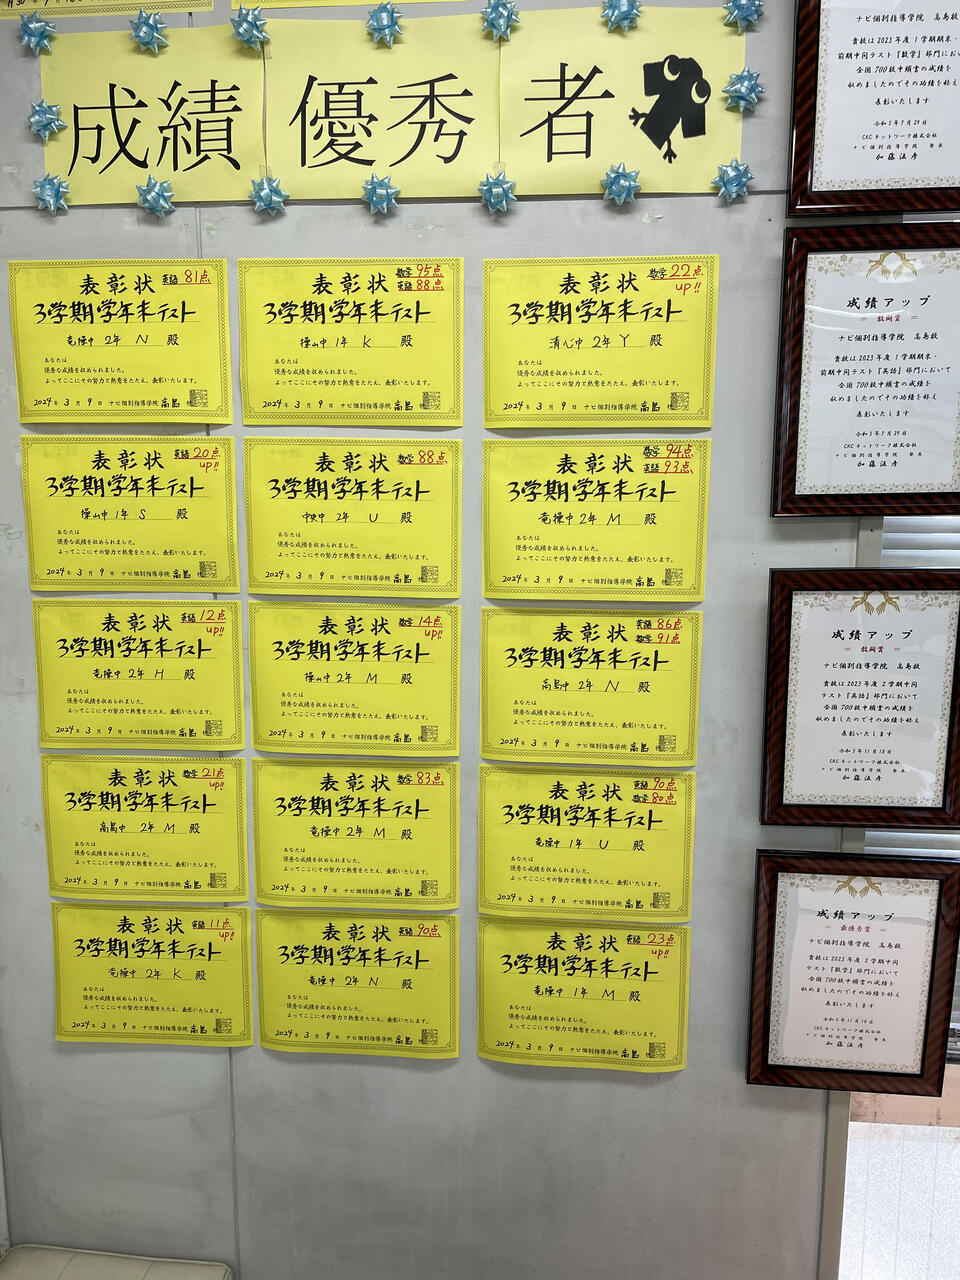 成績優秀者
表彰状 英語 81点
3学期学年末テスト
竜操中 2年 N 殿
あなたは
優秀な成績を収められました。
よってここにその努力と熱意をたたえ、表彰いたします。
2024年 3月 9日 ナビ個別指導学院 高島校
表彰状 数学 95点
英語 88点
3学期学年末テスト
操山中 1年 K 殿
あなたは
優秀な成績を収められました。
よってここにその努力と熱意をたたえ、表彰いたします。
2024年 3月 9日 ナビ個別指導学院 高島校
表彰状 数学 22点
up!!
3学期学年末テスト
清心中 2年 Y 殿
あなたは
優秀な成績を収められました。
よってここにその努力と熱意をたたえ、表彰いたします。
2024年 3月 9日 ナビ個別指導学院 高島校
表彰状 英語 20点
up!!
3学期学年末テスト
操山中 1年 S 殿
あなたは
優秀な成績を収められました。
よってここにその努力と熱意をたたえ、表彰いたします。
2024年 3月 9日 ナビ個別指導学院 高島校
表彰状 数学 88点
3学期学年末テスト
中央中 2年 U 殿
あなたは
優秀な成績を収められました。
よってここにその努力と熱意をたたえ、表彰いたします。
2024年 3月 9日 ナビ個別指導学院 高島校
表彰状 数学 94点
英語 93点
3学期学年末テスト
竜操中 2年 M 殿
あなたは
優秀な成績を収められました。
よってここにその努力と熱意をたたえ、表彰いたします。
2024年 3月 9日 ナビ個別指導学院 高島校
表彰状 英語 12点
up!!
3学期学年末テスト
竜操中 2年 H 殿
あなたは
優秀な成績を収められました。
よってここにその努力と熱意をたたえ、表彰いたします。
2024年 3月 9日 ナビ個別指導学院 高島校
表彰状 数学 14点
up!!
3学期学年末テスト
操山中 2年 M 殿
あなたは
優秀な成績を収められました。
よってここにその努力と熱意をたたえ、表彰いたします。
2024年 3月 9日 ナビ個別指導学院 高島校
表彰状 英語 86点
数学 91点
3学期学年末テスト
高島中 2年 N 殿
あなたは
優秀な成績を収められました。
よってここにその努力と熱意をたたえ、表彰いたします。
2024年 3月 9日 ナビ個別指導学院 高島校
表彰状 数学 21点
up!!
3学期学年末テスト
高島中 2年 M 殿
あなたは
優秀な成績を収められました。
よってここにその努力と熱意をたたえ、表彰いたします。
2024年 3月 9日 ナビ個別指導学院 高島校
表彰状 数学 83点
3学期学年末テスト
竜操中 2年 M 殿
あなたは
優秀な成績を収められました。
よってここにその努力と熱意をたたえ、表彰いたします。
2024年 3月 9日 ナビ個別指導学院 高島校
表彰状 英語 90点
数学 80点
3学期学年末テスト
竜操中 1年 U 殿
あなたは
優秀な成績を収められました。
よってここにその努力と熱意をたたえ、表彰いたします。
2024年 3月 9日 ナビ個別指導学院 高島校
表彰状 英語 11点
up!!
3学期学年末テスト
竜操中 2年 K 殿
あなたは
優秀な成績を収められました。
よってここにその努力と熱意をたたえ、表彰いたします。
2024年 3月 9日 ナビ個別指導学院 高島校
表彰状 英語 90点
3学期学年末テスト
竜操中 2年 N 殿
あなたは
優秀な成績を収められました。
よってここにその努力と熱意をたたえ、表彰いたします。
2024年 3月 9日 ナビ個別指導学院 高島校
表彰状 英語 23点
up!!
3学期学年末テスト
竜操中 1年 M 殿
あなたは
優秀な成績を収められました。
よってここにその努力と熱意をたたえ、表彰いたします。
2024年 3月 9日 ナビ個別指導学院 高島校
ナビ個別指導学院 高島校
貴校は2023年度1学期期末・
前期中間テスト『数学』部門において
全国700校中頭書の成績を
収めましたのでその功績を称え
表彰いたします
令和5年7月29日
CKCネットワーク株式会社
ナビ個別指導学院 塾長
加藤法彦
成績アップ
= 敢闘賞 =
ナビ個別指導学院 高島校
貴校は2023年度1学期期末・
前期中間テスト『英語』部門において
全国700校中頭書の成績を
収めましたのでその功績を称え
表彰いたします
令和5年7月29日
CKCネットワーク株式会社
ナビ個別指導学院 塾長
加藤法彦
成績アップ
= 敢闘賞 =
ナビ個別指導学院 高島校
貴校は2023年度2学期中間
テスト『英語』部門において
全国700校中頭書の成績を
収めましたのでその功績を称え
表彰いたします
令和5年11月18日
CKCネットワーク株式会社
ナビ個別指導学院 塾長
加藤法彦
成績アップ
= 最優秀賞 =
ナビ個別指導学院 高島校
貴校は2023年度2学期中間
テスト『数学』部門において
全国700校中頭書の成績を
収めましたのでその功績を称え
表彰いたします
令和5年11月18日
CKCネットワーク株式会社
ナビ個別指導学院 塾長
加藤法彦